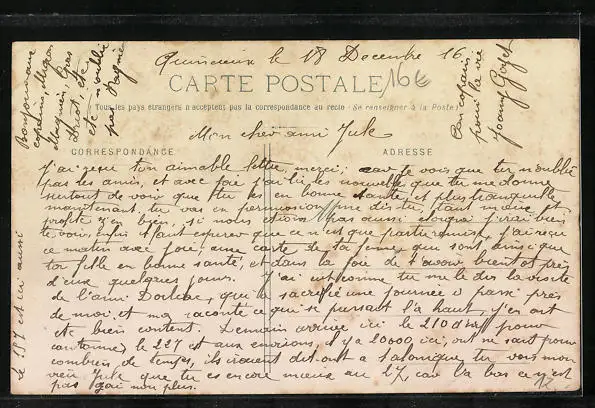 Quincieux le 18 Decembre 16
CARTE POSTALE
16€
Tous les pays étrangers n'acceptent pas la correspondance au recto (Se renseigner à la Poste)
Mon cher ami Jule
CORRESPONDANCE ADRESSE
J'ai reçu ton aimable lettre, merci; car je vois que tu n'oublie
pas les amis, et avec joie j'ai lu les nouvelle que tu me donne
surtout de voir que tu es en bonne santé, et plus tranquille
maintenant, tu vas en permission me dis tu, tant mieux et
profite s'en bien, si nous étions pas aussi éloigné j'irai bien
te voir, enfin il faut esperer que ce n'est que partie remise, j'ai reçu
ce matin avec joie, une carte de ta femme que sont ainsi que
ta fille en bonne santé, et dans la joie de t'avoir bientôt près
d'eux quelques jours. J'ai eu comme tu me le dis la visite
de l'ami qui a sacrifié une journée a passé près
de moi, et ma raconté ce qui se passait l'à haut, j'en ai
etc bien content. Demain arrive ici le 210 d'inf pour
cantonné le 227 est aux environs, il y a 20000 ici, ont ne sait pour
combien de temps, ils iraient dit-ont a Salonique, tu vois mon
vieu Jule que tu es encore mieux au 27, car la bas ce n'est
pas gai non plus.
le 157 est ici aussi
Bonjour aux
copains,
etc n'oublie
pas
Ton copain
pour la vie
Joanny
12